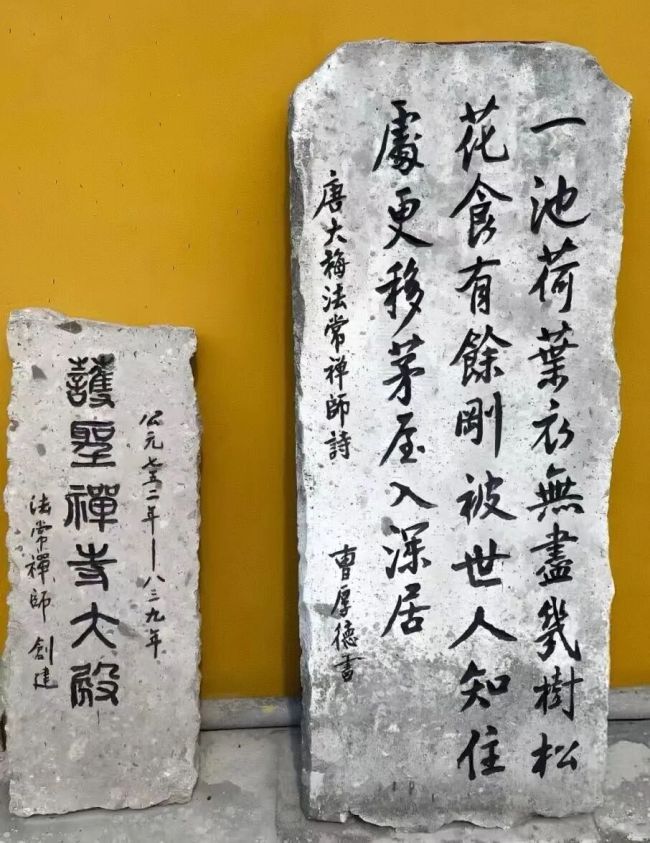 一池荷葉衣無盡幾樹松
花食有餘剛被世人知住
處更移茅屋入深居
唐大梅法常禅師詩 曹厚德書
公元七五二年—八三九年
護聖禪寺大殿
法常禪師 創建